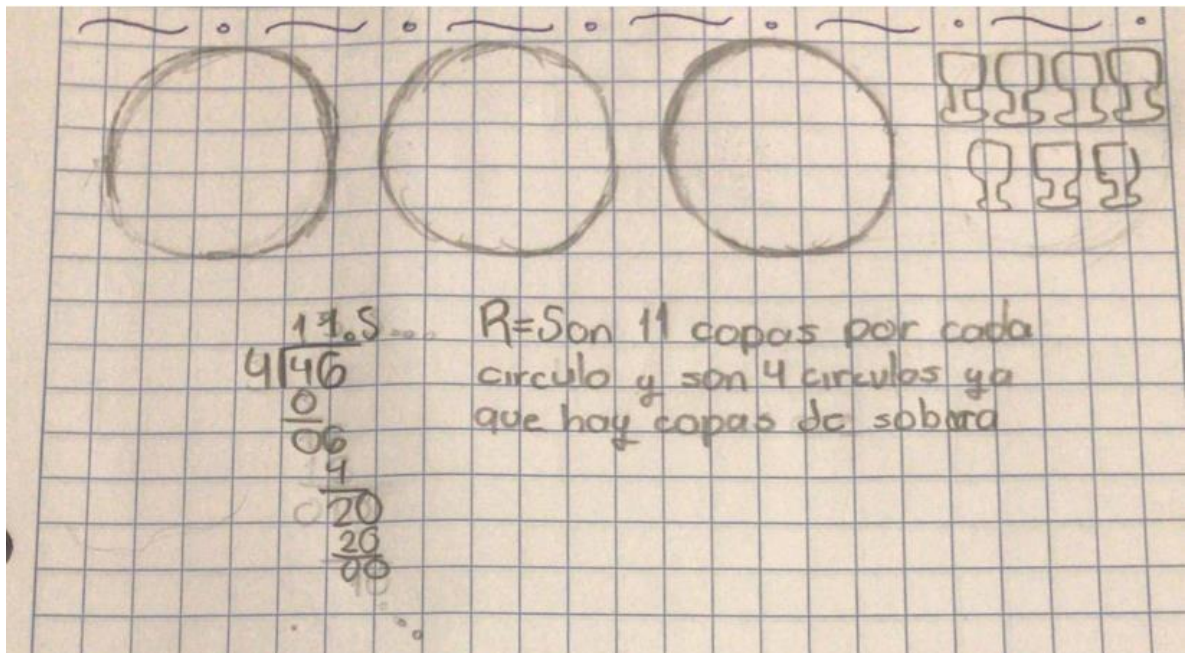 11.5
4 46
0
06
4
020
20
00
R=Son 11 copas por cada
circulo y son 4 circulos ya
que hay copas de sobra